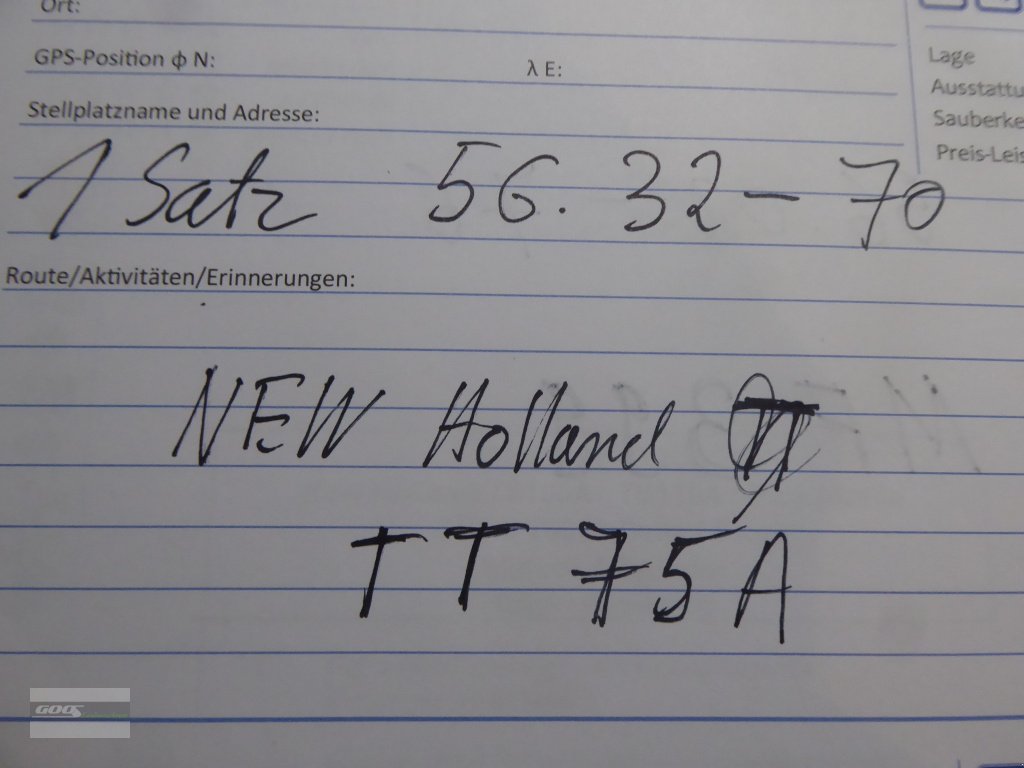 Ort:
GPS-Position ϕ N: λ E:
Lage
Stellplatzname und Adresse:
Ausstattu
Sauberke
Preis-Leis
1 Satz 56. 32 - 70
Route/Aktivitäten/Erinnerungen:
NEW Holland
TT 75A
GOOS